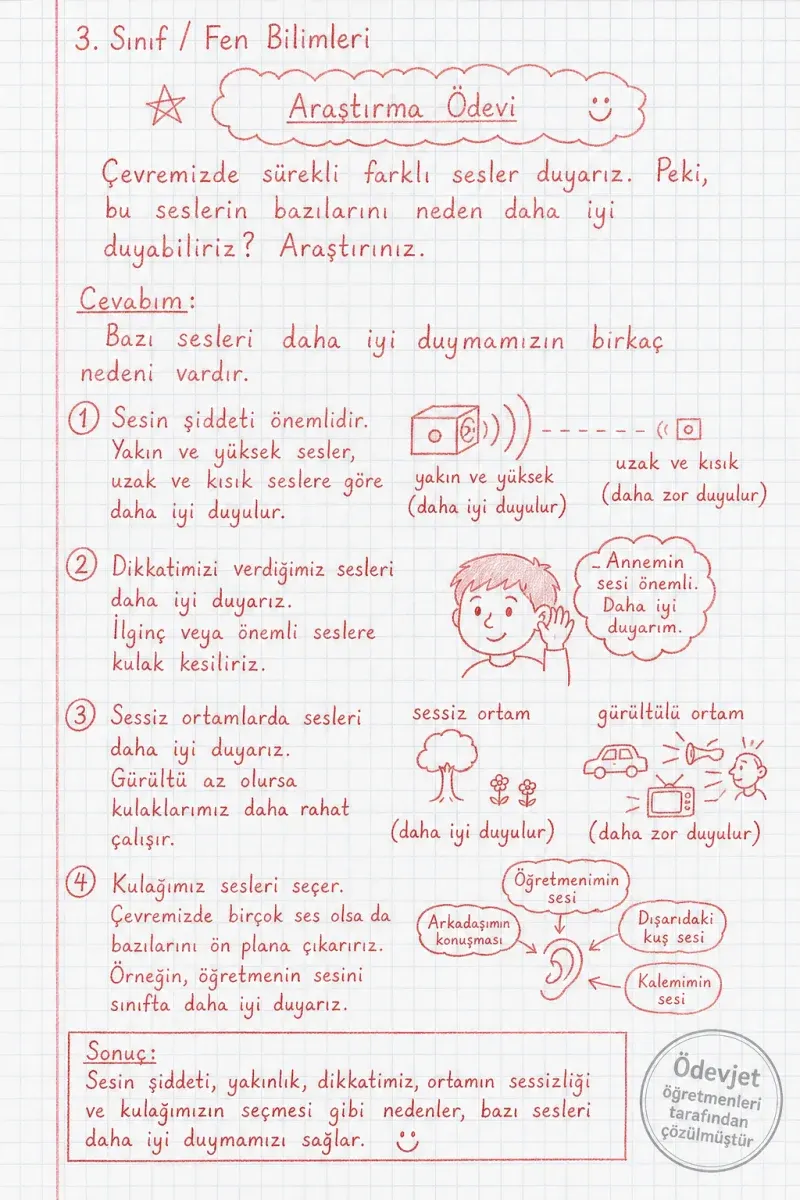 3. Sınıf / Fen Bilimleri
Araştırma Ödevi
Çevremizde sürekli farklı sesler duyarız. Peki,
bu seslerin bazılarını neden daha iyi
duyabiliriz? Araştırınız.
Cevabım:
Bazı sesleri daha iyi duymamızın birkaç
nedeni vardır.
1 Sesin şiddeti önemlidir.
Yakın ve yüksek sesler,
uzak ve kısık seslere göre
daha iyi duyulur.
yakın ve yüksek
(daha iyi duyulur)
uzak ve kısık
(daha zor duyulur)
2 Dikkatimizi verdiğimiz sesleri
daha iyi duyarız.
İlginç veya önemli seslere
kulak kesiliriz.
- Annemin
sesi önemli.
Daha iyi
duyarım.
3 Sessiz ortamlarda sesleri
daha iyi duyarız.
Gürültü az olursa
kulaklarımız daha rahat
çalışır.
sessiz ortam
(daha iyi duyulur)
gürültülü ortam
(daha zor duyulur)
4 Kulağımız sesleri seçer.
Çevremizde birçok ses olsa da
bazılarını ön plana çıkarırız.
Örneğin, öğretmenin sesini
sınıfta daha iyi duyarız.
Öğretmenimin
sesi
Arkadaşımın
konuşması
Dışarıdaki
kuş sesi
Kalemimin
sesi
Sonuç:
Sesin şiddeti, yakınlık, dikkatimiz, ortamın sessizliği
ve kulağımızın seçmesi gibi nedenler, bazı sesleri
daha iyi duymamızı sağlar.
Ödevjet
öğretmenleri
tarafından
çözülmüştür